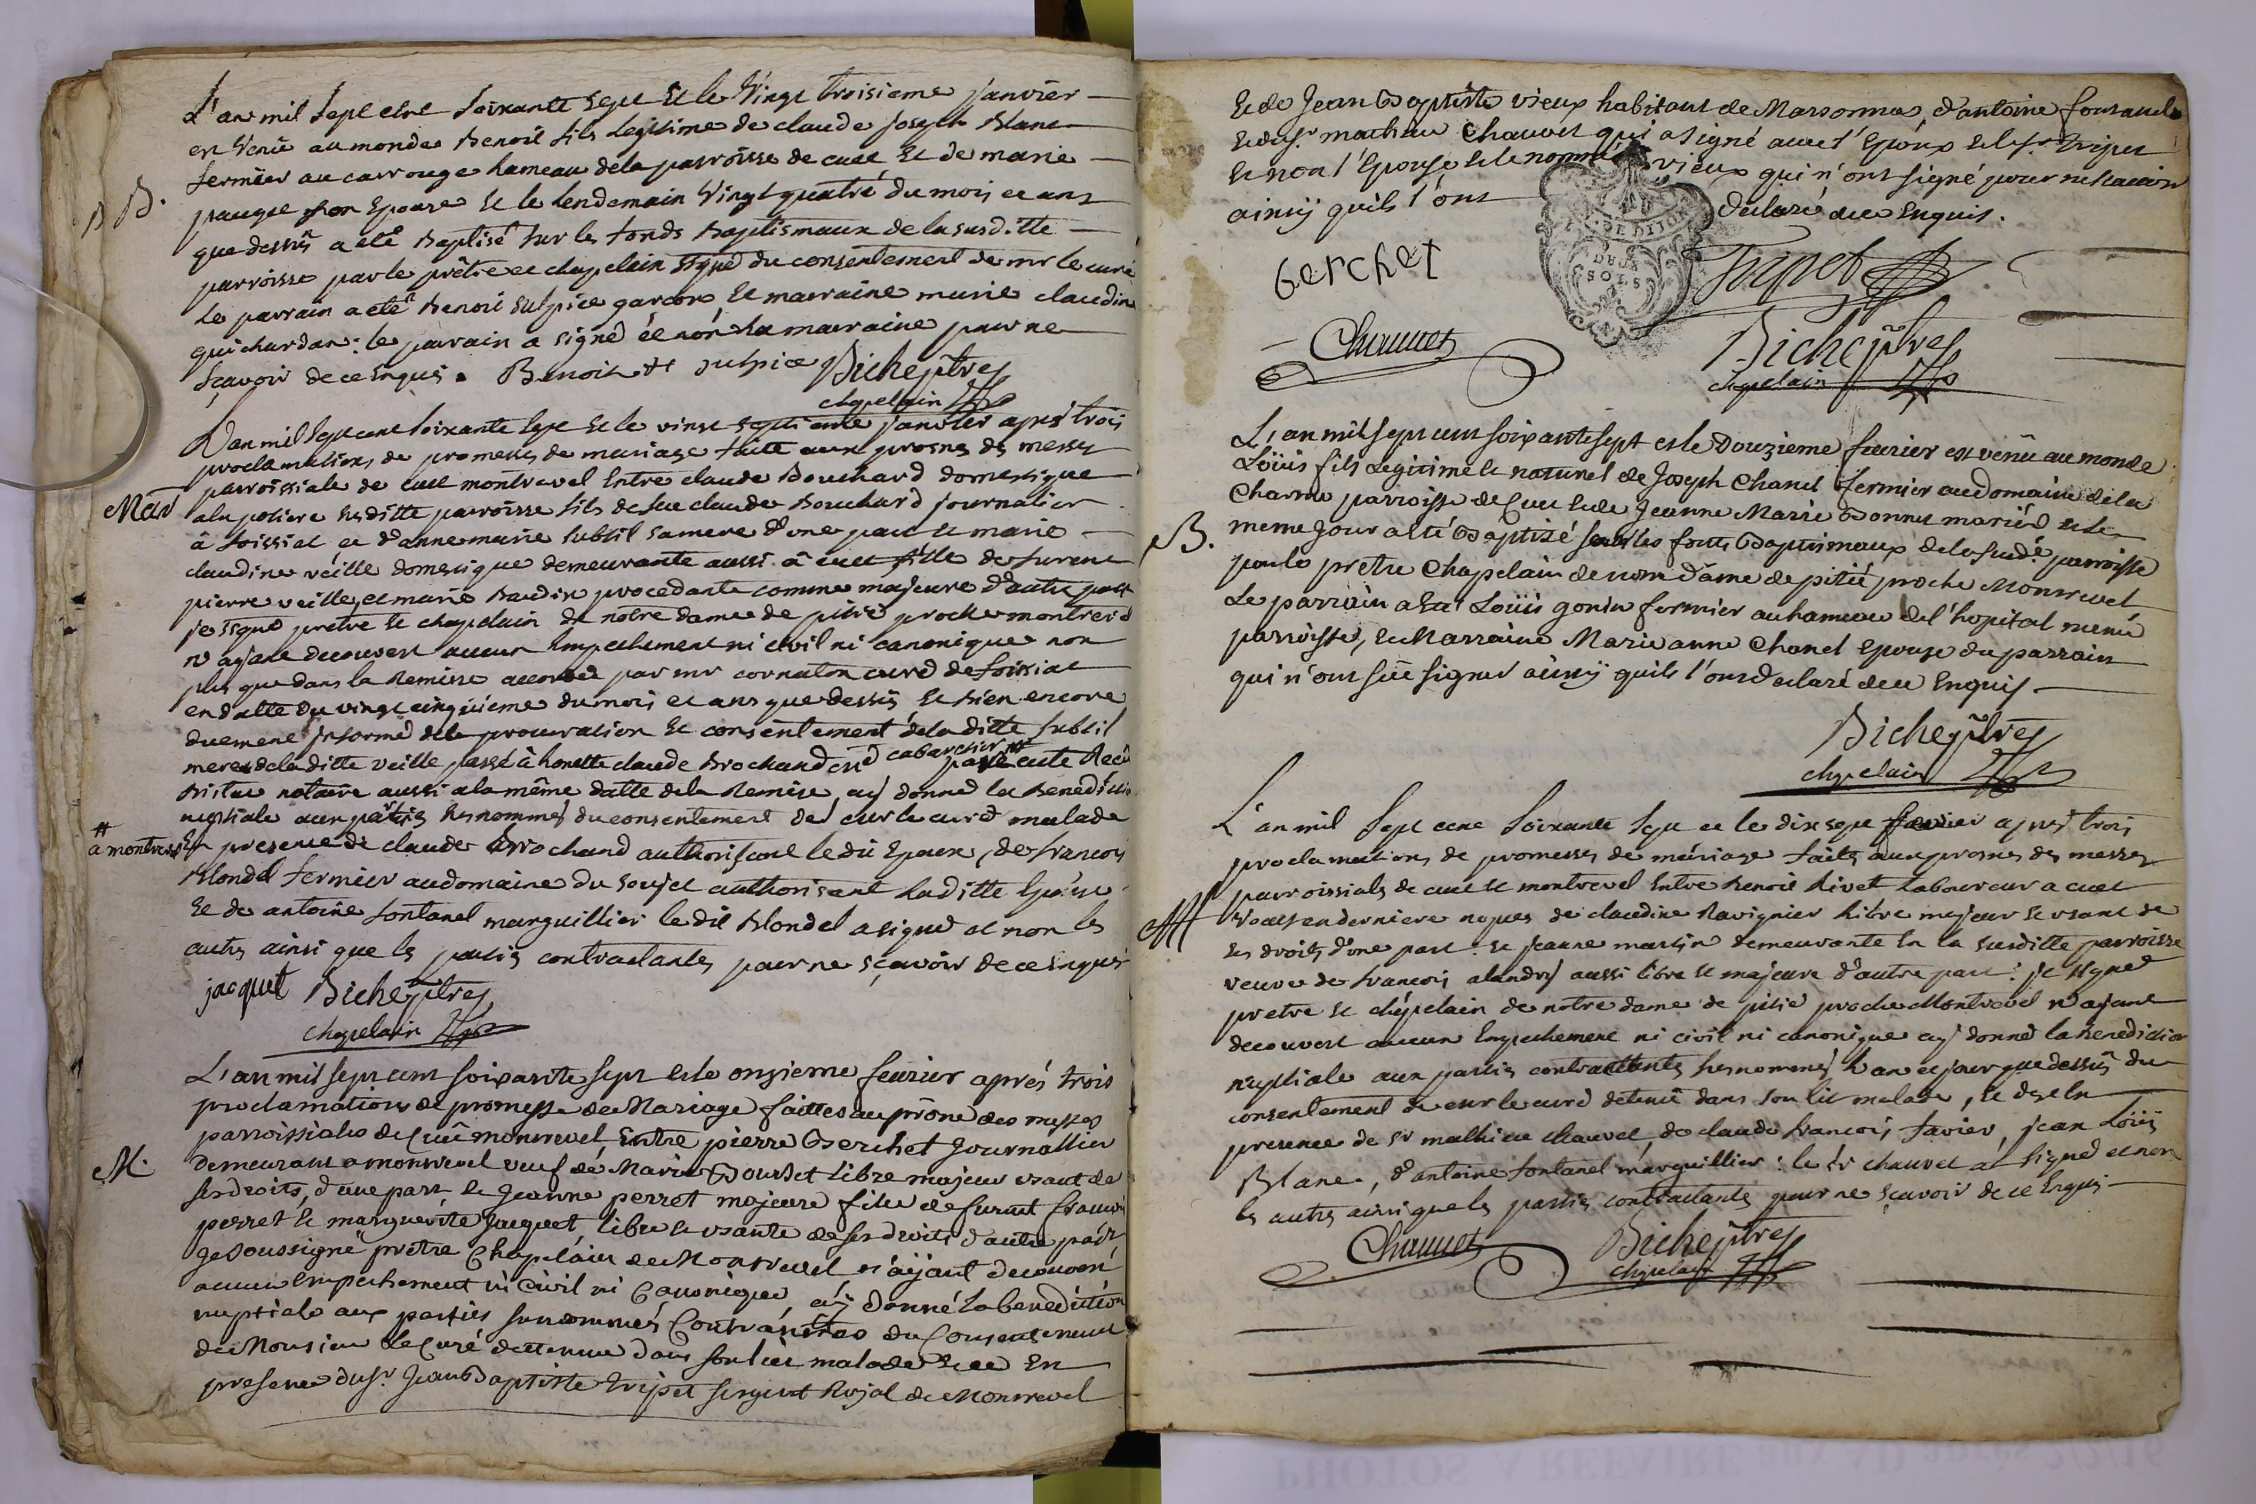 B B.
L'an mil sept cent soixante sept et le vingt troisieme janvier
est venu au monde Benoit fils legitime de claude joseph Blanc
fermier au carrouge hameau de la parroisse de cuet et de marie
pauget son epouse et le lendemain vingt quatre du mois et ans
que dessus a eté Baptisé sur les fonds Baptismaux de la susditte
parroisse par le prêtre et chapelain ssigné du consentement de mr le curé
Le parrain a eté Benoit sulpice garcon et marraine marie claudine
guichardan: le parrain a signé et non la marraine pour ne
sçavoir de ce enquis. Benoit sulpice Biche ptre
chapelain
L'an mil sept cent soixante sept et le vingt septieme janvier apres trois
proclamations de promesses de mariage faitte aux prosnes des messes
parroissiale de cuet montrevel entre claude Bouchard domestique
Mar
a la poliere susditte parroisse fils de feu claude Bouchard journalier
à foissiat et d'anne marie subtil sa mere d'une part et marie
claudine veille domestique demeurante aussi à cuet fille de furent
pierre veille et marie Baudin procedante comme majeure d'autre part
je ssigné pretre et chapelain de notre dame de pitié proche montrevel
n'ayant decouvert aucun empechement ni civil ni canonique non
plus que dans la Remise accordée par mr cornaton curé de foissiat
en datte du vingt cinquieme du mois et ans que dessus et bien encore
duement informé de la procuration et consentement de la ditte subtil
mere de la ditte veille passé à honette claude Brochand cabaretier # par
notaire aussi a la même datte de la Remise, ay donné la Benediction
nuptiale aux parties susnommés du consentement de sur le curé malade
# a montrevel
En presence de claude Brochand authorisant le dit Epoux, de francois
Blondel fermier au domaine du soujet authorisant la ditte Epouse
et de antoine fontanel marguillier le dit Blondel a signé et non les
autres ainsi que les parties contractantes pour ne sçavoir de ce enquis
jacquet Biche ptre
chapelain
L'an mil sept cent soixante sept et le onzieme fevrier aprés trois
proclamations de promesse de Mariage faittes au prône des messes
parroissiales de Cuet monrevel, Entre pierre Berchet Journallier
M.
demeurant a monrevel veuf de Marie Bourdet libre majeur usant de
ses droits, d'une part et Jeanne perret majeure fille de furent francois
perret et marguerite Jacquet, libre et usante de ses droits d'autre part
Je soussigné prêtre Chapelain de Monrevel n'aÿant decouvert
aucun empechement ni Civil ni Canonique aÿ donné la benediction
nuptiale aux parties surnommées Contractantes du Consentement
de Monsieur Le Curé detenue dans son lict malade et ce En
presence du sr. Jean Baptiste tripet sergent Royal de Monrevel
et de Jean Baptiste vieux habitant de Marsonnas, d'antoine fontanel
et de sr. mathieu Chauvet qui a signé avec l'Epoux et le sr. tripet
et non l'Epouse et le nommé vieux qui n'ont signé pour ne sçavoir
ainsÿ quils l'ont declaré de ce enquis.
berchet
Tripet
Chauvet
Biche ptre
chapelain
L'an mil sept cent soixante sept et le Douzieme fevrier est venû au monde
Loüis fils Legitime et naturel de Joseph Chanel fermier au domaine de la
Charme parroisse de Cuet et de Jeanne Marie Bonnet mariés et le
B.
meme Jour a eté Baptizé sur les fonts Baptismaux de la susde. parroisse
par le prêtre Chapelain de nom d'âme de pitié proche Monrevel
Le parrain a eté Loüis gonin fermier au hameau de l'hopital meme
parroisse, et Marraine Marie anne Chanel Epouse du parrain
qui n'ont süe signer ainsÿ quils l'ont declaré de ce Enquis.
Biche ptre
chapelain
L'an mil sept cent soixante sept et le dix sept fevrier apres trois
proclamations de promesses de mariage faites aux prosnes des messes
parroissiales de cuet et montrevel Entre Benoit Rivet Laboureur a cuet
M
veuf en derniere nopces de claudine Ravignier libre majeur et usant de
ses droits d'une part et jeanne martin demeurante En la susditte parroisse
veuve de francois alandry aussi libre et majeure d'autre part: je ssigné
pretre et chapelain de notre dame de pitié proche Montrevel n'ayant
decouvert aucun Empechement ni civil ni canonique ay donné la Benediction
nuptiale aux parties contractentes susnommés L'an et jour que dessus du
consentement de sur le curé detenû dans son lit malade, et de et En
presence de Sr mathieu chauvet, de claude francois favier, jean Loüis
Blanc, d'antoine fontanel marguillier: le Sr chauvet at signé et non
les autres ainsi que les parties contractantes pour ne sçavoir de ce Enquis
Chauvet
Biche ptre
chapelain